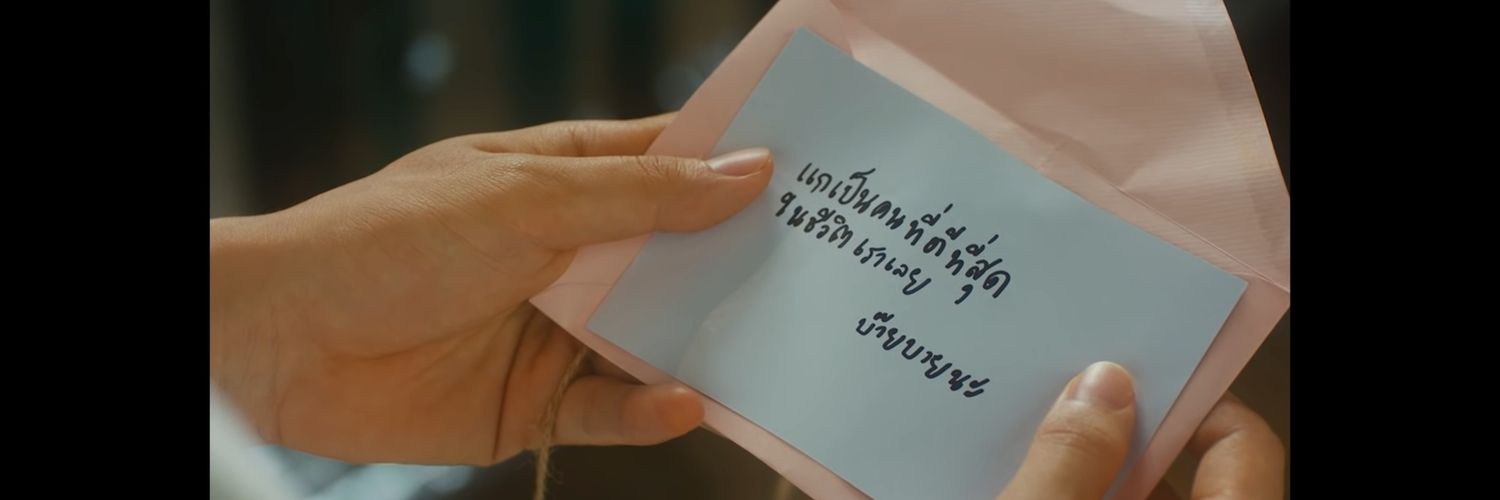 แกเป็นคนที่ดีที่สุด
ในชีวิตเราเลย
บ๊ายบายนะ